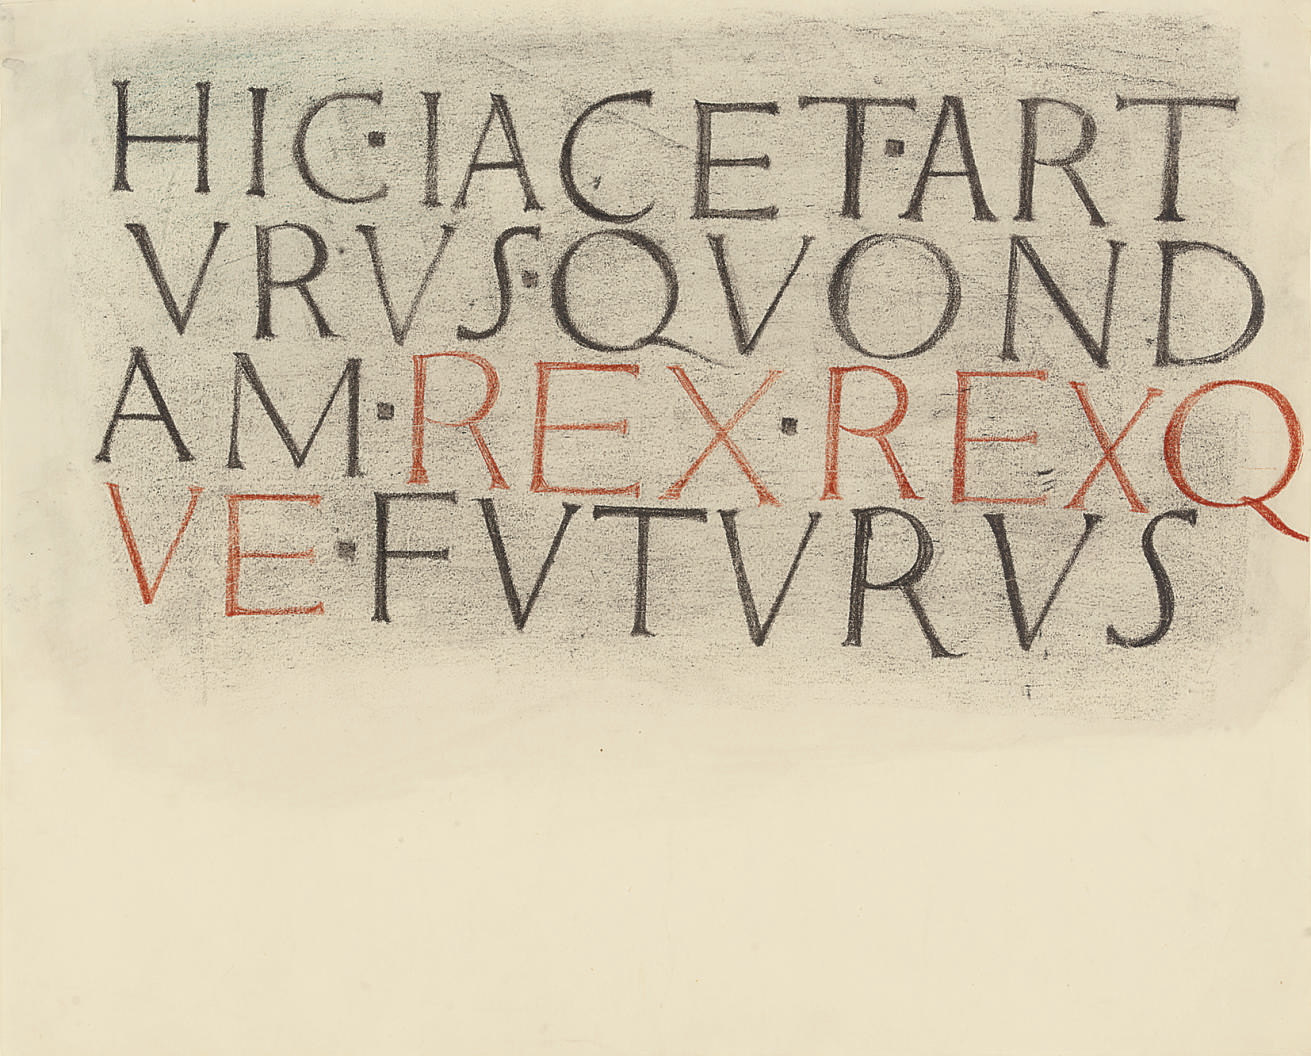 HIC·IACET·ART
VRVS·QVOND
AM·REX·REXQ
VE·FVTVRVS